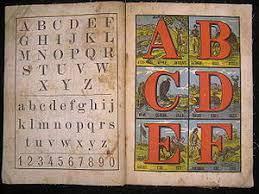 A B C D E
F G H I J K
L M N O P
Q R S T U V
W X Y Z
a b c d e f g h i j
k l m n o p q r s t u
v w x y z
1 2 3 4 5 6 7 8 9 0
A B
C D
E F